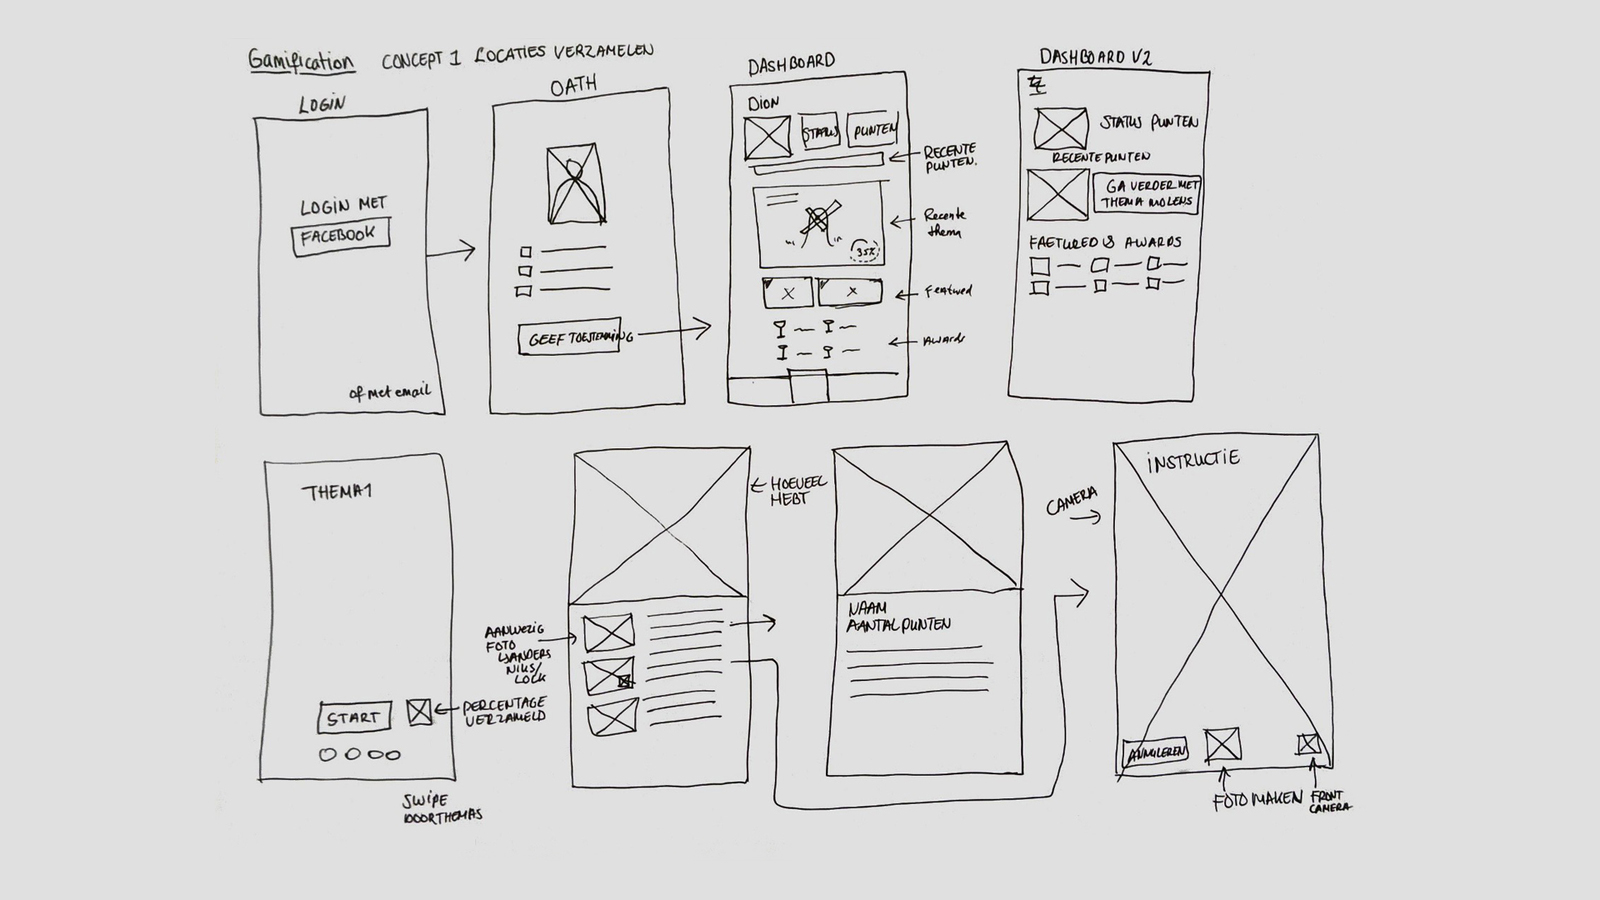 Gamification CONCEPT 1 LOCATIES VERZAMELEN
LOGIN
LOGIN MET
FACEBOOK
of met email
OATH
GEEF TOESTEMMING
DASHBOARD
DION
STATUS
PUNTEN
RECENTE
PUNTEN.
Recente
thema
35%
Featured
Awards
DASHBOARD V2
STATUS PUNTEN
RECENTE PUNTEN
GA VERDER MET
THEMA MOLENS
FAETURED & AWARDS
THEMA 1
START
PERCENTAGE
VERZAMELD
SWIPE
DOOR THEMAS
HOEVEEL
HEBT
AANWEZIG
FOTO
ANDERS
NIKS/
LOCK
NAAM
AANTAL PUNTEN
CAMERA
INSTRUCTIE
ANNULEREN
FOTO MAKEN
FRONT
CAMERA